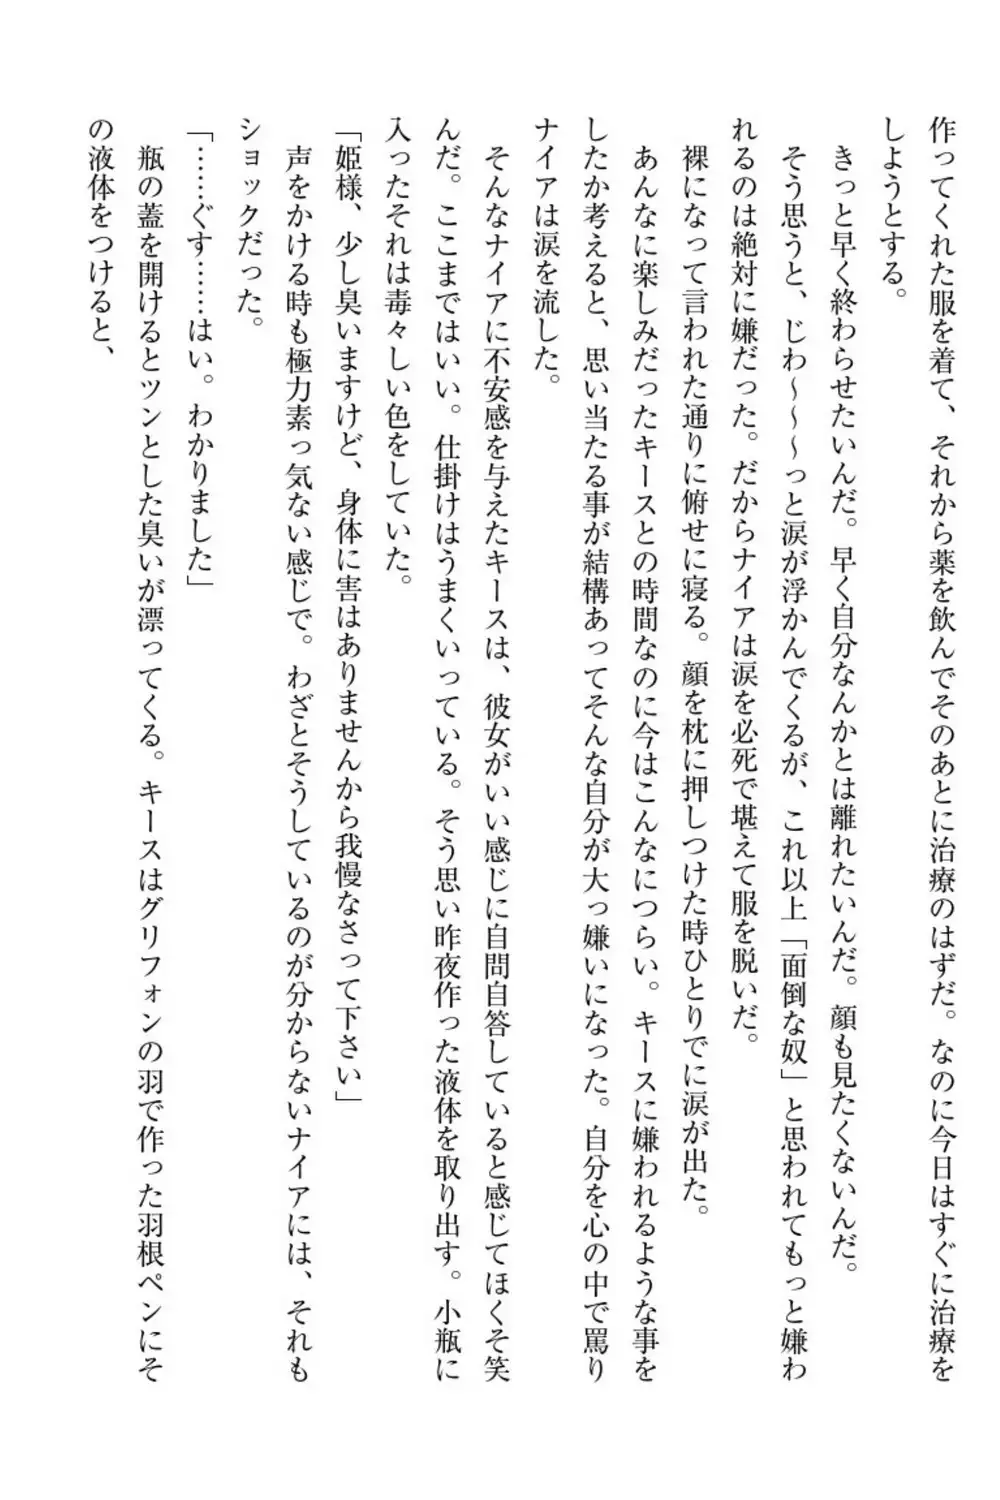 作ってくれた服を着て、それから薬を飲んでそのあとに治療のはずだ。なのに今日はすぐに治療を
しようとする。
きっと早く終わらせたいんだ。早く自分なんかとは離れたいんだ。顔も見たくないんだ。
そう思うと、じわ～～～っと涙が浮かんでくるが、これ以上「面倒な奴」と思われてもっと嫌わ
れるのは絶対に嫌だった。だからナイアは涙を必死で堪えて服を脱いだ。
裸になって言われた通りに俯せに寝る。顔を枕に押しつけた時ひとりでに涙が出た。
あんなに楽しみだったキースとの時間なのに今はこんなにつらい。キースに嫌われるような事を
したか考えると、思い当たる事が結構あってそんな自分が大っ嫌いになった。自分を心の中で罵り
ナイアは涙を流した。
そんなナイアに不安感を与えたキースは、彼女がいい感じに自問自答していると感じてほくそ笑
んだ。ここまではいい。仕掛けはうまくいっている。そう思い昨夜作った液体を取り出す。小瓶に
入ったそれは毒々しい色をしていた。
「姫様、少し臭いますけど、身体に害はありませんから我慢なさって下さい」
声をかける時も極力素っ気ない感じで。わざとそうしているのが分からないナイアには、それも
ショックだった。
「……ぐす……はい。わかりました」
瓶の蓋を開けるとツンとした臭いが漂ってくる。キースはグリフォンの羽で作った羽根ペンにそ
の液体をつけると、